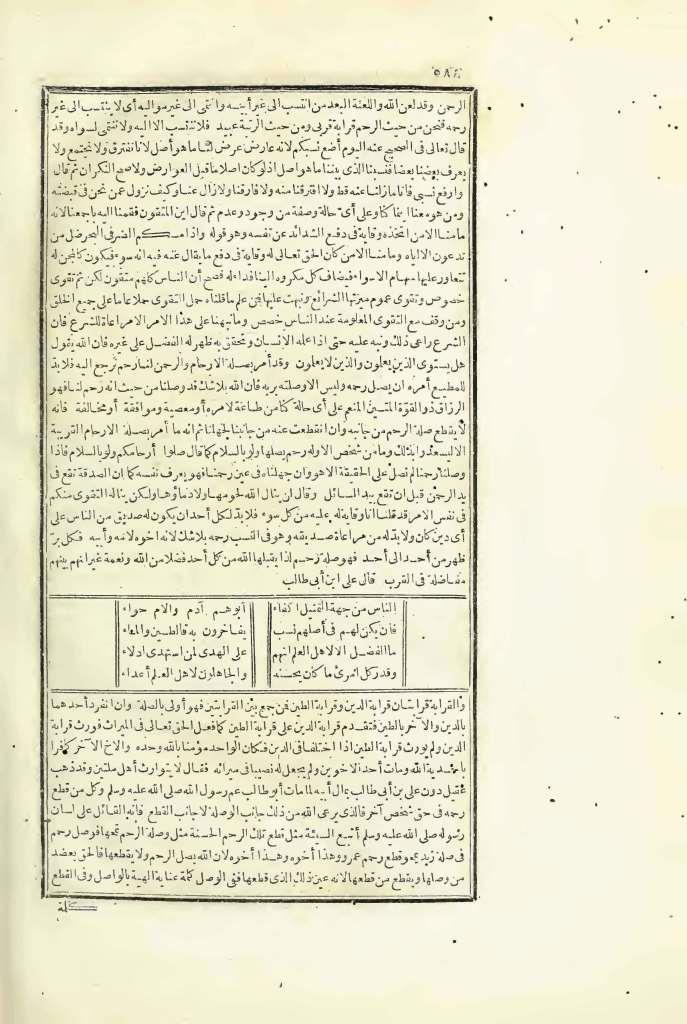 ٥٨٤
الرحمن وقد لعن الله واللعنة البعد من انتسب الى غير أبيه وانتمى الى غير مواليه أى لا ينتسب الى غير
رحمه فنحن من حيث الرحم قرابة قربى ومن حيث الرتبة عبيد فلا ننتسب الا اليه ولا ننتمى لسواه وقد
قال تعالى فى الصحيح عنه اليوم أضع نسبكم لانه عارض عرض لنا ما هو أصل لانا نفترق ولا نجتمع ولا
يعرف بعضنا بعضا فنسبنا الذى بيننا ما هو اصل اذ لو كان اصلا ما قبل العوارض ولا صح النكران ثم قال
وارفع نسبى فانا ما زلنا عنه قط ولا افترقنا منه ولا فارقنا ولا زال عنا وكيف نزول عمن نحن فى قبضته
ومن هو معنا اينما كنا وعلى أى حالة وصفة من وجود وعدم ثم قال اين المتقون فقمنا اليه باجمعنا لانه
ما منا الا من اتخذه وقاية فى دفع الشدائد عن نفسه وهو قوله واذا مسكم الضر فى البحر ضل من
تدعون الا اياه وما منا الا من كان الحق تعالى له وقاية فى دفع ما يقال عنه فيه انه سوء فيكون كالمجن له
تتعاور عليها سهام الاسواء فيضاف كل مكروه الينا فداء له فصح أن الناس كلهم متقون لكن ثم تقوى
خصوص وتقوى عموم ميزتها الشرائع ونبهت عليها فمن علم ما قلناه حمل التقوى حملا عاما على جميع الخلق
ومن وقف مع التقوى المعلومة عند الناس خصص وما نبهنا على هذا الامر الا مراعاة للشرع فان
الشرع راعى ذلك ونبه عليه حتى اذا علمه الانسان وتحقق به ظهر له الفضل على غيره فان الله يقول
هل يستوى الذين يعلمون والذين لا يعلمون وقد أمر بصلة الارحام والرحمن لنا رحم نرجع اليه فلا بد
للمطيع أمره ان يصل رحمه وليس الا وصلته بربه فان الله بلا شك قد وصلنا من حيث انه رحم لنا فهو
الرزاق ذو القوة المتين المنعم على أى حالة كنا من طاعة لامره أو معصية وموافقة أو مخالفة فانه
لا يقطع صلة الرحم من جانبه وان انقطعت عنه من جانبنا لجهلنا ثم انه ما أمر بصلة الارحام القريبة
الا ليسعدوا بذلك وما من شخص الا وله رحم يصلها ولو بالسلام كما قال صلوا أرحامكم ولو بالسلام فاذا
وصلنا رحمنا لم نصل على الحقيقة الا هو وان جهلناه فى عين رحمنا فهو يعرف نفسه كما ان الصدقة تقع فى
يد الرحمن قبل ان تقع بيد السائل وقال لن ينال الله لحومها ولا دماؤها ولكن يناله التقوى منكم
فى نفس الامر قد قلنا اننا وقاية له عليه من كل سوء فلا بد لكل أحد ان يكون له صديق من الناس على
أى دين كان ولا بد له من مراعاة صديقه وهو فى النسب رحمه بلا شك لانه اخوه لامه وأبيه فكل بر
ظهر من أحد الى أحد فهو صلة رحم لذا يقبلها الله من كل أحد فضلا من الله ونعمة غير انهم بينهم
مفاضلة فى القرب قال على ابن أبى طالب
الناس من جهة التمثيل اكفاء أبوهم آدم والام حواء
فان يكن لهم فى أصلهم نسب يفاخرون به فالطين والماء
ما الفضل الا لاهل العلم انهم على الهدى لمن استهدى ادلاء
وقدر كل امرئ ما كان يحسنه والجاهلون لاهل العلم أعداء
والقرابة قرابتان قرابة الدين وقرابة الطين فمن جمع بين القرابتين فهو أولى بالصلة وان انفرد أحدهما
بالدين والآخر بالطين فتقدم قرابة الدين على قرابة الطين كما فعل الحق تعالى فى الميراث فورث قرابة
الدين ولم يورث قرابة الطين اذا اختلفا فى الدين فكان الواحد مؤمنا بالله وحده والاخ الآخر كافرا
بأحدية الله ومات أحد الاخوين ولم يجعل له نصيبا فى ميراثه فقال لا يتوارث أهل ملتين وقد ذهب
عقيل دون على بن أبى طالب بمال أبيه لما مات أبو طالب عم رسول الله صلى الله عليه وسلم وكل من قطع
رحمه فى حق شخص آخر فالذى يرعى الله من ذلك جانب الوصلة لا جانب القطع فانه القائل على لسان
رسوله صلى الله عليه وسلم أتبع السيئة مثل قطع تلك الرحم الحسنة مثل وصلة الرحم تمحها فوصل رحم
فى صلة زيد يمحو قطع رحم عمرو وهذا أخوه وهذا أخوه لان الله يصل الرحم ولا يقطعها فالحق بعضد
من وصلها ويقطع من قطعها لانه عين ذلك الذى قطعها ففى الوصل كلمة عناية الهية بالواصل وفى القطع
كلمة